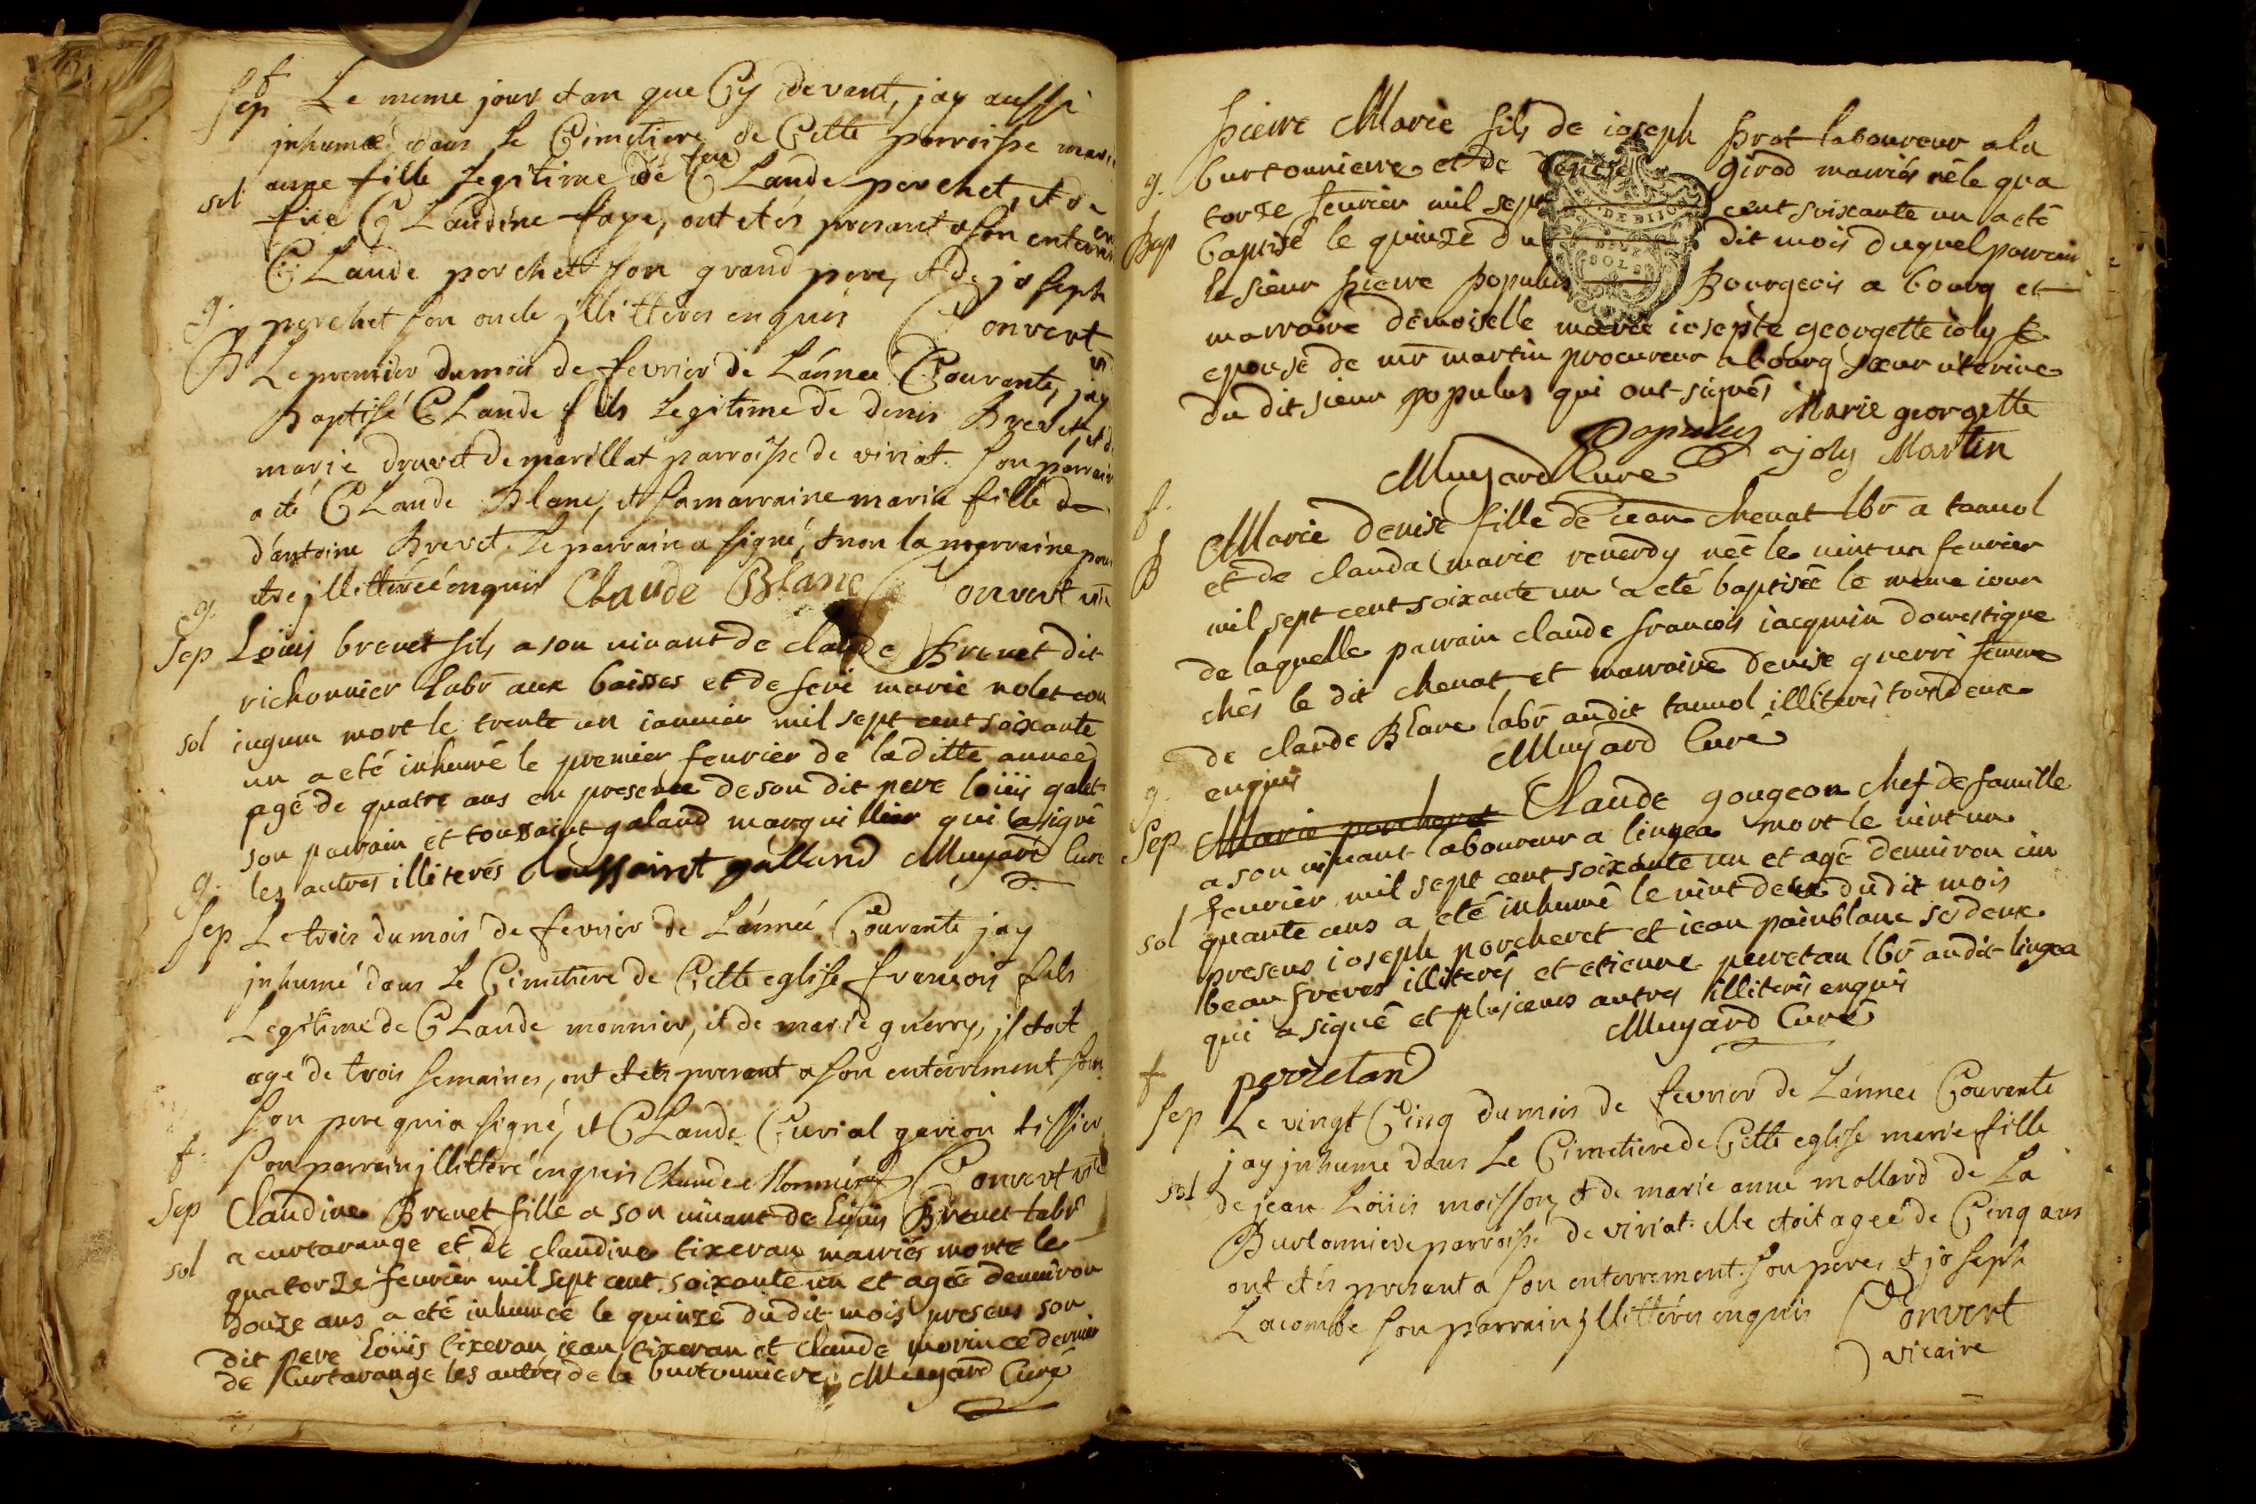 f
Sep Le meme jour et an que Cy devant, jay aussi
jnhumée dans le Cimetiere de Cette parroisse marie
sol anne fille Legitime de feu CLaude perchet, et de
füe CLaudine faye, ont etés present a son enterrem
en
CLaude perchet son grand pere, et de joseph
g. perchet son oncle jllitteres enquis Convert
B Le premier du mois de fevrier de L'année Courante, jay
Baptisé CLaude fils Legitime de denis Brevet, et de
marie druvet de marillat parroisse de viriat. son parrain
a eté CLaude Blanc, et sa marraine marie fille de
d'antoine Brevet. le parrain a signé, et non la marraine pour
etre jllitterée enquis Claude Blanc Convert vre
g.
Sep Loüis brevet fils a son vivant de claude Brevet dit
richonnier labr aux baisses et de feüe marie nolet con
sol iugum mort le trente un ianvier mil sept cent soixante
un a eté inhumé le premier fevrier de laditte année
agé de quatre ans en presence de son dit pere loüis galet
son parrain et toussaint galand marguillier qui a signé
les autres illiterés toussaint galland Muyard Curé
g.
Sep Le trois du mois de fevrier de L'année Courante jay
jnhumé dans Le Cimetiere de Cette eglise francois fils
Legitime de CLaude monnier, et de marie guerry, jl etoit
agé de trois semaines, ont etés present a son enterrement
son pere qui a signé, et CLaude Curial garcon tissier
f. son parrain jllitteré enquis Claude Monnier Convert vre
Sep Claudine Brevet fille a son vivant de Loüis Brevet labr
sol a curtarange et de claudine tixeran mariés morte le
quatorze fevrier mil sept cent soixante un et agée denviron
douze ans a eté inhumée le quinze du dit mois presens son
dit pere Loüis tixeran jean tixeran et claude morin ce dernier
de Curtarange les autres de la burtonniere Muyard Curé
Pierre Marie fils de ioseph Prat laboureur a la
g. burtonniere et de denise Girod mariés né le qua
torze fevrier mil sept cent soixante un a eté
Bap baptisé le quinze du dit mois duquel parrain
le sieur pierre populus Bourgeois a bourg et
DE DIJON
SOLS
marraine demoiselle marie iosepte georgette ioly
epouse de mr martin procureur a bourg sœur uterine
du dit sieur populus qui ont signés
Populus Marie georgette
ajoly Martin
Muyard Curé
f.
B Marie denise fille de iean chenat lbr a tanvol
et de clauda marie reverdy née le vint un fevrier
mil sept cent soixante un a eté baptisée le meme iour
de laquelle parrain claude francois iacquin domestique
chés le dit chenat et marraine denise guerri femme
de claude Blanc labr audit tanvol illiterés tous deux
enquis Muyard Curé
g.
Sep Marie porcheret Claude gougeon chef de famille
a son vivant laboureur a lingea mort le vint un
fevrier mil sept cent soixante un et agé denviron cin
sol quante ans a eté inhumé le vint deux dudit mois
presens ioseph porcheret et iean painblanc ses deux
beau freres illiterés et etienne perretan lbr audit lingea
qui a signé et plusieurs autres illiterés enquis
Muyard Curé
f perretand
Sep Le vingt Cinq du mois de fevrier de L'année Courante
jay jnhumé dans Le Cimetiere de Cette eglise marie fille
sol de jean Loüis moisson, et de marie anne mollard de La
Burtonniere parroisse de viriat. elle etoit agée de Cinq ans
ont etés present a son enterrement. son pere, et joseph
Lacombe son parrain jllitterés enquis Convert
vicaire